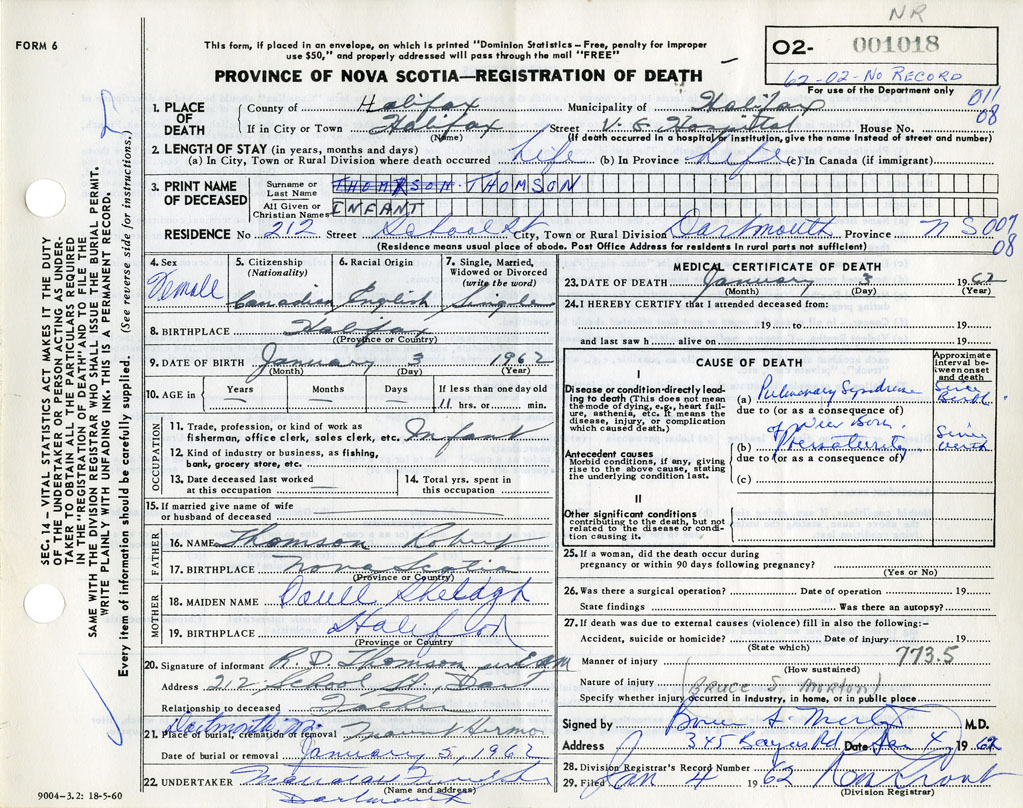 NR
FORM 6
This form, if placed in an envelope, on which is printed "Dominion Statistics – Free, penalty for improper
use $50," and properly addressed will pass through the mail "FREE"
02- 001018
62-02-NO RECORD
PROVINCE OF NOVA SCOTIA—REGISTRATION OF DEATH
For use of the Department only
011
08
1. PLACE OF DEATH County of Halifax Municipality of Halifax
If in City or Town Halifax Street V. G. Hospital House No.
(Name) (If death occurred in a hospital or institution, give the name instead of street and number)
2. LENGTH OF STAY (in years, months and days)
(a) In City, Town or Rural Division where death occurred Life (b) In Province Life (c) In Canada (if immigrant)
3. PRINT NAME OF DECEASED Surname or Last Name THOMSON
All Given or Christian Names INFANT
RESIDENCE No 212 Street School St City, Town or Rural Division Dartmouth Province N S 007
08
(Residence means usual place of abode. Post Office Address for residents in rural parts not sufficient)
4. Sex Female
5. Citizenship (Nationality) Canadian
6. Racial Origin English
7. Single, Married, Widowed or Divorced (write the word) Single
8. BIRTHPLACE Halifax
(Province or Country)
9. DATE OF BIRTH January 3 1962
(Month) (Day) (Year)
10. AGE in Years Months Days If less than one day old
11 hrs. or min.
OCCUPATION
11. Trade, profession, or kind of work as
fisherman, office clerk, sales clerk, etc. Infant
12. Kind of industry or business, as fishing,
bank, grocery store, etc.
13. Date deceased last worked
at this occupation
14. Total yrs. spent in
this occupation
15. If married give name of wife
or husband of deceased
FATHER
16. NAME Thomson Robert
17. BIRTHPLACE Nova Scotia
(Province or Country)
MOTHER
18. MAIDEN NAME Shelagh
19. BIRTHPLACE
(Province or Country)
20. Signature of informant R. D. Thomson
Address 212 School St. Dart
Relationship to deceased Father
Dartmouth
21. Place of burial, cremation or removal Mount Hermon
Date of burial or removal January 5, 1962
22. UNDERTAKER
(Name and address)
Dartmouth
9004-3.2: 18-5-60
MEDICAL CERTIFICATE OF DEATH
23. DATE OF DEATH January 3 1962
(Month) (Day) (Year)
24. I HEREBY CERTIFY that I attended deceased from:
19 to 19
and last saw h alive on 19
CAUSE OF DEATH
Approximate interval between onset and death
I
Disease or condition directly leading to death (This does not mean the mode of dying, e.g., heart failure, asthenia, etc. It means the disease, injury, or complication which caused death.)
(a) Pulmonary Syndrome Since Birth
due to (or as a consequence of)
of New Born.
Antecedent causes
Morbid conditions, if any, giving rise to the above cause, stating the underlying condition last.
(b) Prematurity Since Birth
due to (or as a consequence of)
(c)
II
Other significant conditions
contributing to the death, but not related to the disease or condition causing it.
25. If a woman, did the death occur during
pregnancy or within 90 days following pregnancy?
(Yes or No)
26. Was there a surgical operation? Date of operation 19
State findings Was there an autopsy?
27. If death was due to external causes (violence) fill in also the following:-
Accident, suicide or homicide? Date of injury 19
(State which)
773.5
Manner of injury
(How sustained)
Nature of injury
(BRUCE S. MORTON)
Specify whether injury occurred in Industry, in home, or in public place
Signed by M.D.
Address 345 Bayers Rd Date Jan 4 1962
28. Division Registrar's Record Number
29. Filed Jan 4 1962
(Division Registrar)
SEC. 14 – VITAL STATISTICS ACT MAKES IT THE DUTY
OF THE UNDERTAKER OR PERSON ACTING AS UNDER-
TAKER TO OBTAIN THE PARTICULARS REQUIRED
IN THE "REGISTRATION OF DEATH" AND TO FILE THE
SAME WITH THE DIVISION REGISTRAR WHO SHALL ISSUE THE BURIAL PERMIT.
WRITE PLAINLY WITH UNFADING INK. THIS IS A PERMANENT RECORD.
Every item of information should be carefully supplied. (See reverse side for instructions.)